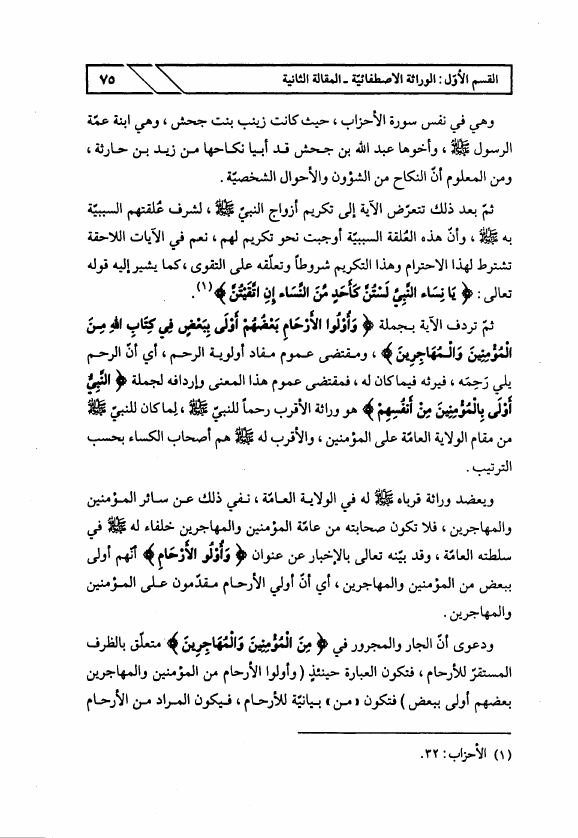 القسم الأوّل : الوراثة الاصطفائيّة ـ المقالة الثانية ٧٥
وهي في نفس سورة الأحزاب ، حيث كانت زينب بنت جحش ، وهي ابنة عمّة
الرسول ﷺ ، وأخوها عبد الله بن جحش قد أبيا نكاحها من زيد بن حارثة ،
ومن المعلوم أنّ النكاح من الشؤون والأحوال الشخصيّة .
ثمّ بعد ذلك تتعرّض الآية إلى تكريم أزواج النبيّ ﷺ ، لشرف عُلقتهم السببيّة
به ﷺ ، وأنّ هذه العُلقة السببيّة أوجبت نحو تكريم لهم ، نعم في الآيات اللاحقة
تشترط لهذا الاحترام وهذا التكريم شروطاً وتعلّقه على التقوى ، كما يشير إليه قوله
تعالى : ﴿ يَا نِسَاء النَّبِيِّ لَسْتُنَّ كَأَحَدٍ مِّنَ النِّسَاء إِنِ اتَّقَيْتُنَّ ﴾ (١).
ثمّ تردف الآية بجملة ﴿ وَأُوْلُوا الأَرْحَامِ بَعْضُهُمْ أَوْلَى بِبَعْضٍ فِي كِتَابِ اللهِ مِنَ
الْمُؤْمِنِينَ وَالْمُهَاجِرِينَ ﴾ ، ومقتضى عموم مفاد أولوية الرحم ، أي أنّ الرحم
يلي رَحِمَه ، فيرثه فيما كان له ، فمقتضى عموم هذا المعنى وإردافه لجملة ﴿ النَّبِيُّ
أَوْلَى بِالْمُؤْمِنِينَ مِنْ أَنفُسِهِمْ ﴾ هو وراثة الأقرب رحماً للنبيّ ﷺ ، لِما كان للنبيّ ﷺ
من مقام الولاية العامّة على المؤمنين ، والأقرب له ﷺ هم أصحاب الكساء بحسب
الترتيب .
ويعضد وراثة قرباه ﷺ له في الولاية العامّة ، نفي ذلك عن سائر المؤمنين
والمهاجرين ، فلا تكون صحابته من عامّة المؤمنين والمهاجرين خلفاء له ﷺ في
سلطته العامّة ، وقد بيّنه تعالى بالإخبار عن عنوان ﴿ وَأُوْلُو الأَرْحَامِ ﴾ أنّهم أولى
ببعض من المؤمنين والمهاجرين ، أي أنّ أولي الأرحام مقدّمون على المؤمنين
والمهاجرين .
ودعوى أنّ الجار والمجرور في ﴿ مِنَ الْمُؤْمِنِينَ وَالْمُهَاجِرِينَ ﴾ متعلّق بالظرف
المستقرّ للأرحام ، فتكون العبارة حينئذٍ ( وأولوا الأرحام من المؤمنين والمهاجرين
بعضهم أولى ببعض ) فتكون «من» بيانيّة للأرحام ، فيكون المراد من الأرحام
(١) الأحزاب : ٣٢.